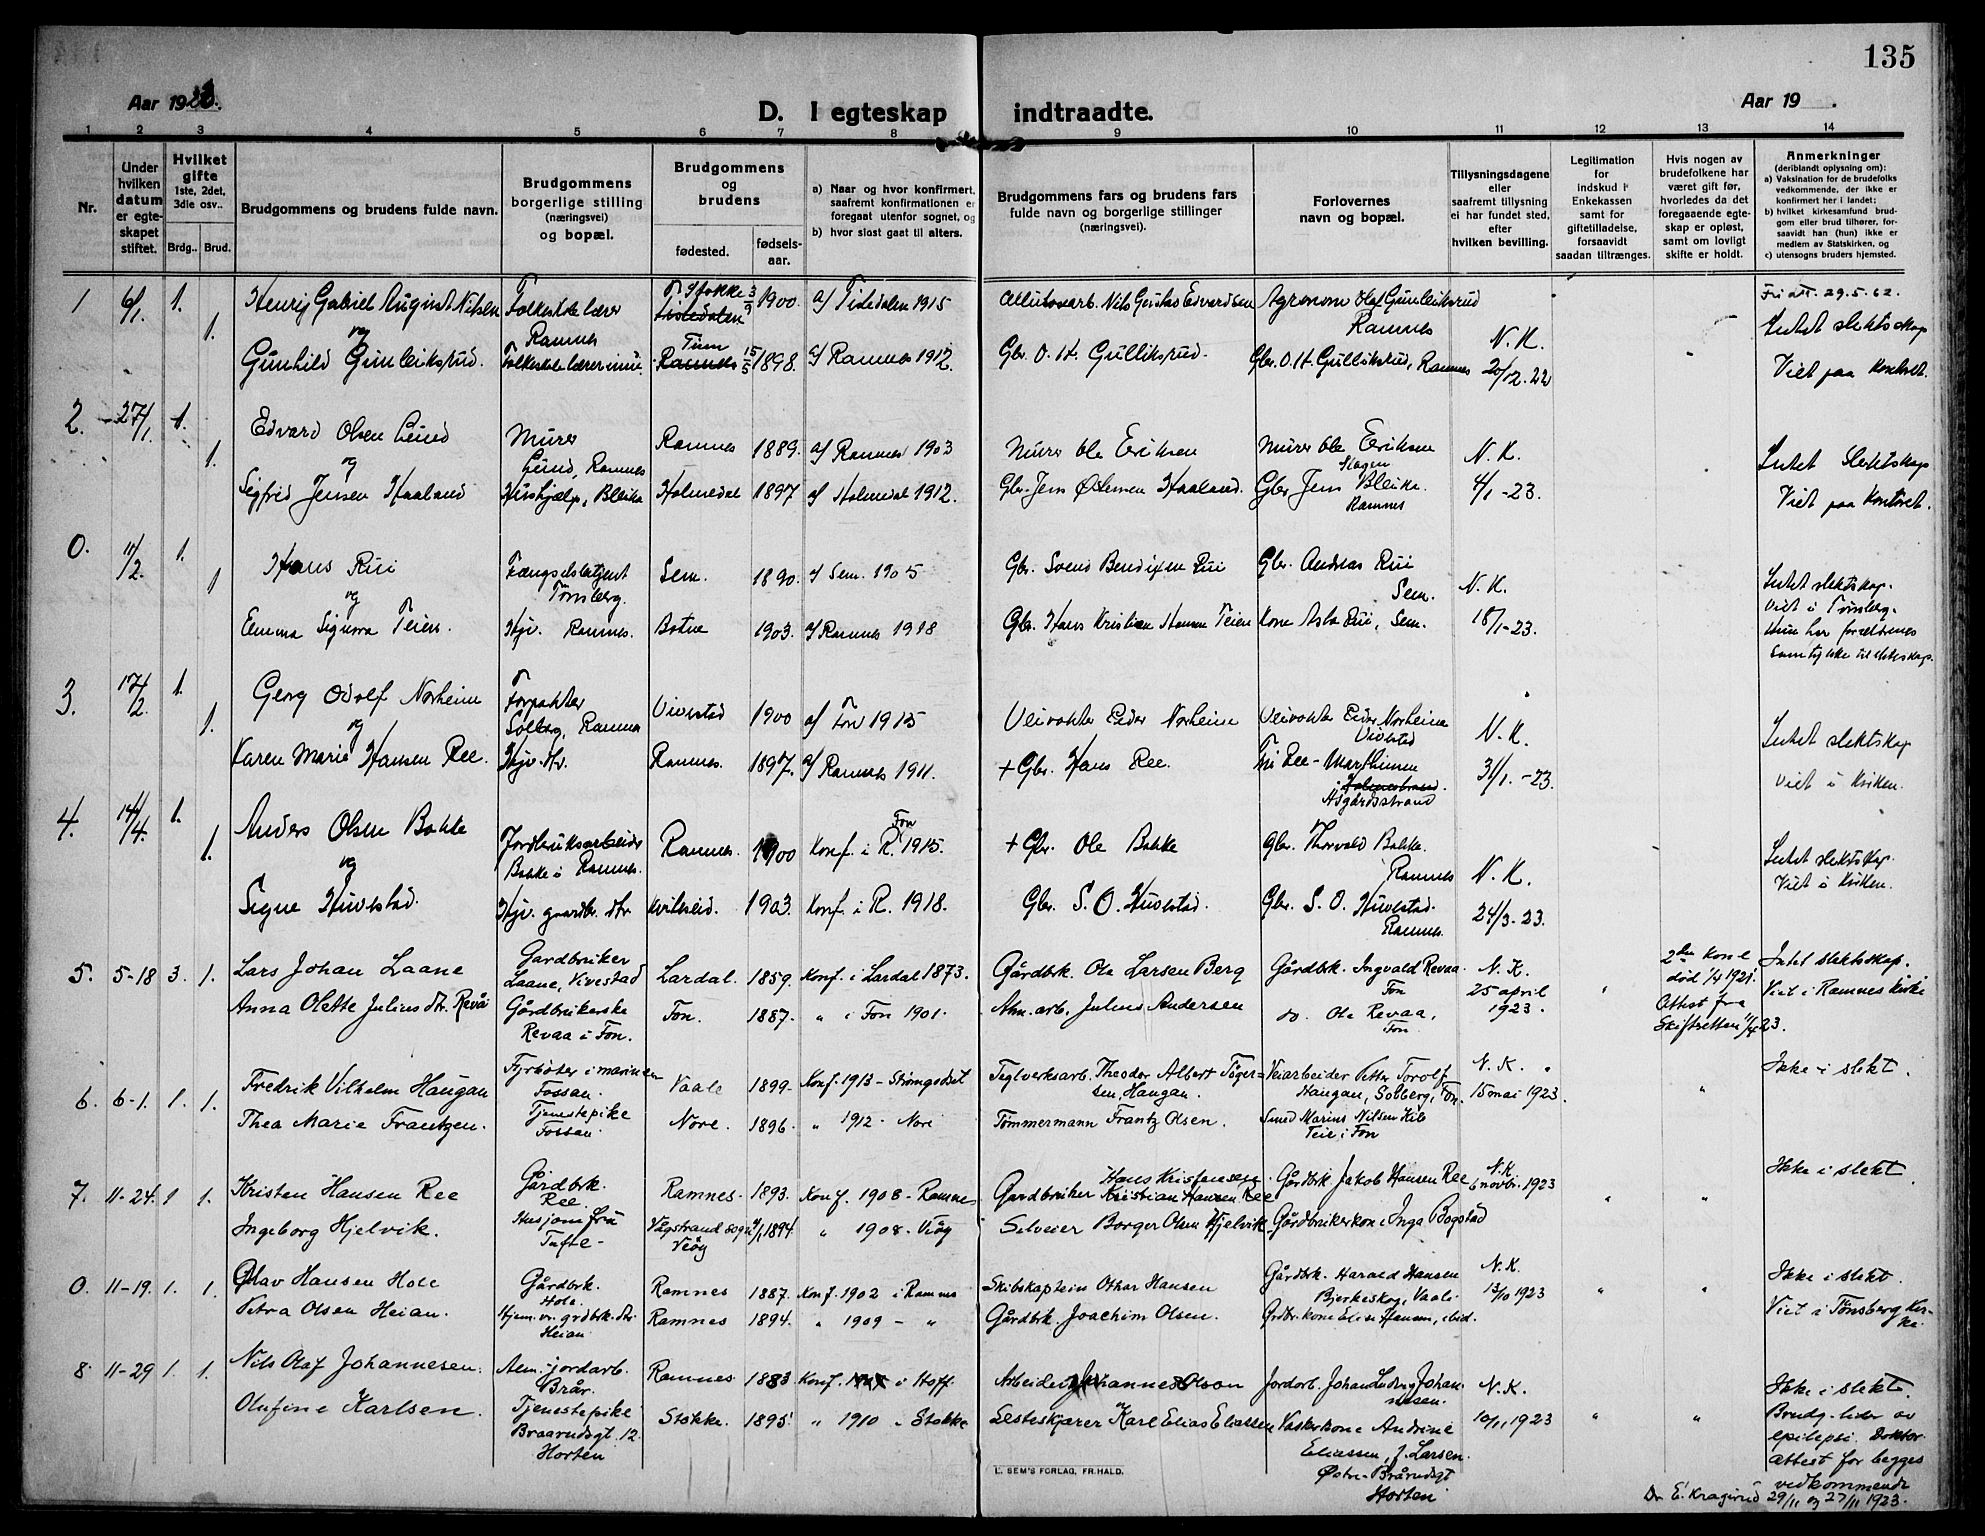 135
Aar 1923.
D. I egteskap indtraadte.
Aar 19 .
1 2 3 4 5 6 7 8 9 10 11 12 13 14
Nr.
Under hvilken datum er egteskapet stiftet.
Hvilket gifte 1ste, 2det, 3die osv..
Brdg.. Brud.
Brudgommens og brudens fulde navn.
Brudgommens borgerlige stilling (næringsvei) og bopæl.
Brudgommens og brudens
fødested. fødselsaar.
a) Naar og hvor konfirmert, saafremt konfirmationen er foregaat utenfor sognet, og
b) hvor sløst gaat til alters.
Brudgommens fars og brudens fars fulde navn og borgerlige stillinger (næringsvei).
Forlovernes navn og bopæl.
Tillysningsdagene eller saafremt tillysning ei har fundet sted, efter hvilken bevilling.
Legitimation for indskud i Enkekassen samt for giftetilladelse, forsaavidt saadan tiltrænges.
Hvis nogen av brudefolkene har været gift før, hvorledes da det foregaaende egteskap er opløst, samt om lovligt skifte er holdt.
Anmerkninger (deriblandt oplysning om):
a) Vaksination for de brudefolks vedkommende, der ikke er konfirmert her i landet;
b) hvilket kirkesamfund brudgom eller brud tilhører, forsaavidt han (hun) ikke er medlem av Statskirken, og
c) utensogns bruders hjemsted.
1 6/1. 1. Henrij Gabriel August Nilsen Folkeskolelærer Ramnes F. Stokke 3/9 Tistedalen 1900. a/ Tistedalen 1915 Nils Gustav Edvardsen Agronom Olaf Gunleiksrud Ramnes N. K. Fr. att. 29.5.62.
og
1. Gunhild Gunleiksrud. Folkeskolelærerinde. Tuns Ramnes 15/5 1898. a/ Ramnes 1912. Gbr. O. H. Gulliksrud. Gbr. O. H. Gulliksrud, Ramnes 20/12.22 Intet slektskap Viet paa Kontoret.
2. 27/1. 1. Edvard Olsen Lund Murer Lund, Ramnes Ramnes 1889. a/ Ramnes 1903 Murer Ole Eriksen Murer Ole Eriksen Slagen N. K. Intet slektskap
og
1. Sigfrid Jensen Haaland Hushjælp, Bleika Holmedal 1897 a/ Holmedal 1912. Gbr. Jens Østensen Haaland. Gbr. Jens Bleika. Ramnes 4/1-23. Viet paa Kontoret.
0. 11/2. 1. Hans Rui Fængselsbetjent Tønsberg. Sem. 1890. a/ Sem. 1905 Gbr. Svend Bendixen Rui Gbr. Andreas Rui Sem. N. K. Intet slektskap.
og
1 Emma Signora Teien. Hjv. Ramnes. Botne 1903. a/ Ramnes 1918 Gbr. Hans Kristian Hansen Teien Kone Asta Rui, Sem. 18/1-23. Viet i Tønsberg. Hun har forældrenes samtykke til ekteskap.
3. 17/2. 1. Georg Odolf Norheim Forpakter Solberg, Ramnes Vivestad 1900 a/ Fon 1915 Veivokter Eidor Norheim Veivokter Eidor Norheim Vivestad N. K. Intet slektskap
og
1. Karen Marie Hansen Ree. Hjv. dtr. Ramnes. 1897. a/ Ramnes 1911. + Gbr. Hans Ree. Holmestrand. Asgårdsstrand 31/1.-23. Viet i Kirken.
4. 14/4. 1. Anders Olsen Bakke Jordbruksarbeider Bakke i Ramnes. Ramnes. 1900 Konf. i R. Fon 1915. + Gbr. Ole Bakke Gbr. Thorvald Bakke. Ramnes N. K. Intet slektskap.
og
1. Signe Huvestad. Hjv. gaardbr. dtr. Kviteseid. 1903. Konf. i R. 1918. Gbr. S. O. Huvestad. Gbr. S. O. Huvestad. Ramnes. 24/3-23. Viet i Kirken.
5. 5-18 3. 1. Lars Johan Laane Gardbruker Laane, Vivestad Lardal. 1859. Konf. i Lardal 1873. Gårdbrk. Ole Larsen Berg Gårdbrk. Ingvald Revaa. Fon N. K. 25 april 1923. 2den kone død 1/4 1921. Attest fra Skifteretten 11/4 23. Intet slektskap. Viet i Ramnes kirke
Anna Olette Julius dtr. Revåi Gårdbrukerske Revaa i Fon. Fon. 1887. " i Fon 1901. Alm. arb. Julius Andersen do. Ole Revaa, Fon.
6. 6-1. 1. 1. Fredrik Vilhelm Haugan Fyrbøter i marinen Fossan. Vaale 1899. Konf. 1913 - Strømgodset Teglverksarb. Theodor Albert Tøgersen, Haugan. Veiarbeider Petter Torolf Haugan, Solberg, Fon. N. K. 15 mai 1923. " Ikke i slekt.
Thea Marie Frantzen. Tjenestepike Fossan. Nore. 1896. " 1912 - Nore Tømmermann Frantz Olsen. Smed Marius Nilsen Kile Teie i Fon
7. 11-24. 1 1. Kristen Hansen Ree Gårdbrk. Ree. Ramnes. 1893. Konf. 1908 - Ramnes Gardbruker Hans Kristensen Kristian Hansen Ree Gårdbrk. Jakob Hansen Ree N. K. 6 novbr. 1923 " " Ikke i slekt.
Ingeborg Hjelvik. Husjomfru Tufte - Vågstrand sogn Veøy 4/1 1894. " 1908 - Veøy Selveier Borger Olsen Hjelvik Gårdbrukerkone Inga Bogstad
0. 11-19. 1. 1. Olav Hansen Hole Gårdbrk. Hole. Ramnes 1887. Konf. 1902 i Ramnes Skibskaptein Othar Hansen Gårdbrk. Harald Hansen Bjerkeskog, Vaale. N. K. 13/10 1923 " " Ikke i slekt.
Petra Olsen Heian. Hjem. v. grdbrk. dtr. Heian Ramnes 1894. " 1909 - " Gårdbrk. Joachim Olsen. Grdbr. kone Elise Hansen, ibid. Viet i Tønsberg Kirke.
8 11-29 1. 1. Nils Olaf Johannesen. Alm. jordarb. Brår. Ramnes 1883. Konf. i Hoff. Arbeider Johannes Olson Jordarb. Johan Ludvig Johannesen. N. K. Ikke i slekt.
Olufine Karlsen. Tjenestepike Braarudsgt. 12. Horten Stokke. 1895. " 1910 " Stokke Karl Elias Eliassen Vaskerkone Andrine Eliassen, f. Larsen. Østre-Brårudsgt Horten 10/11 1923 " " Brudg. lider av epilepsi. Doktorattest for begges vedkommende
Dr. E. Kragsrud 29/11 og 27/11 1923.
L. SEM'S FORLAG, FR.HALD.